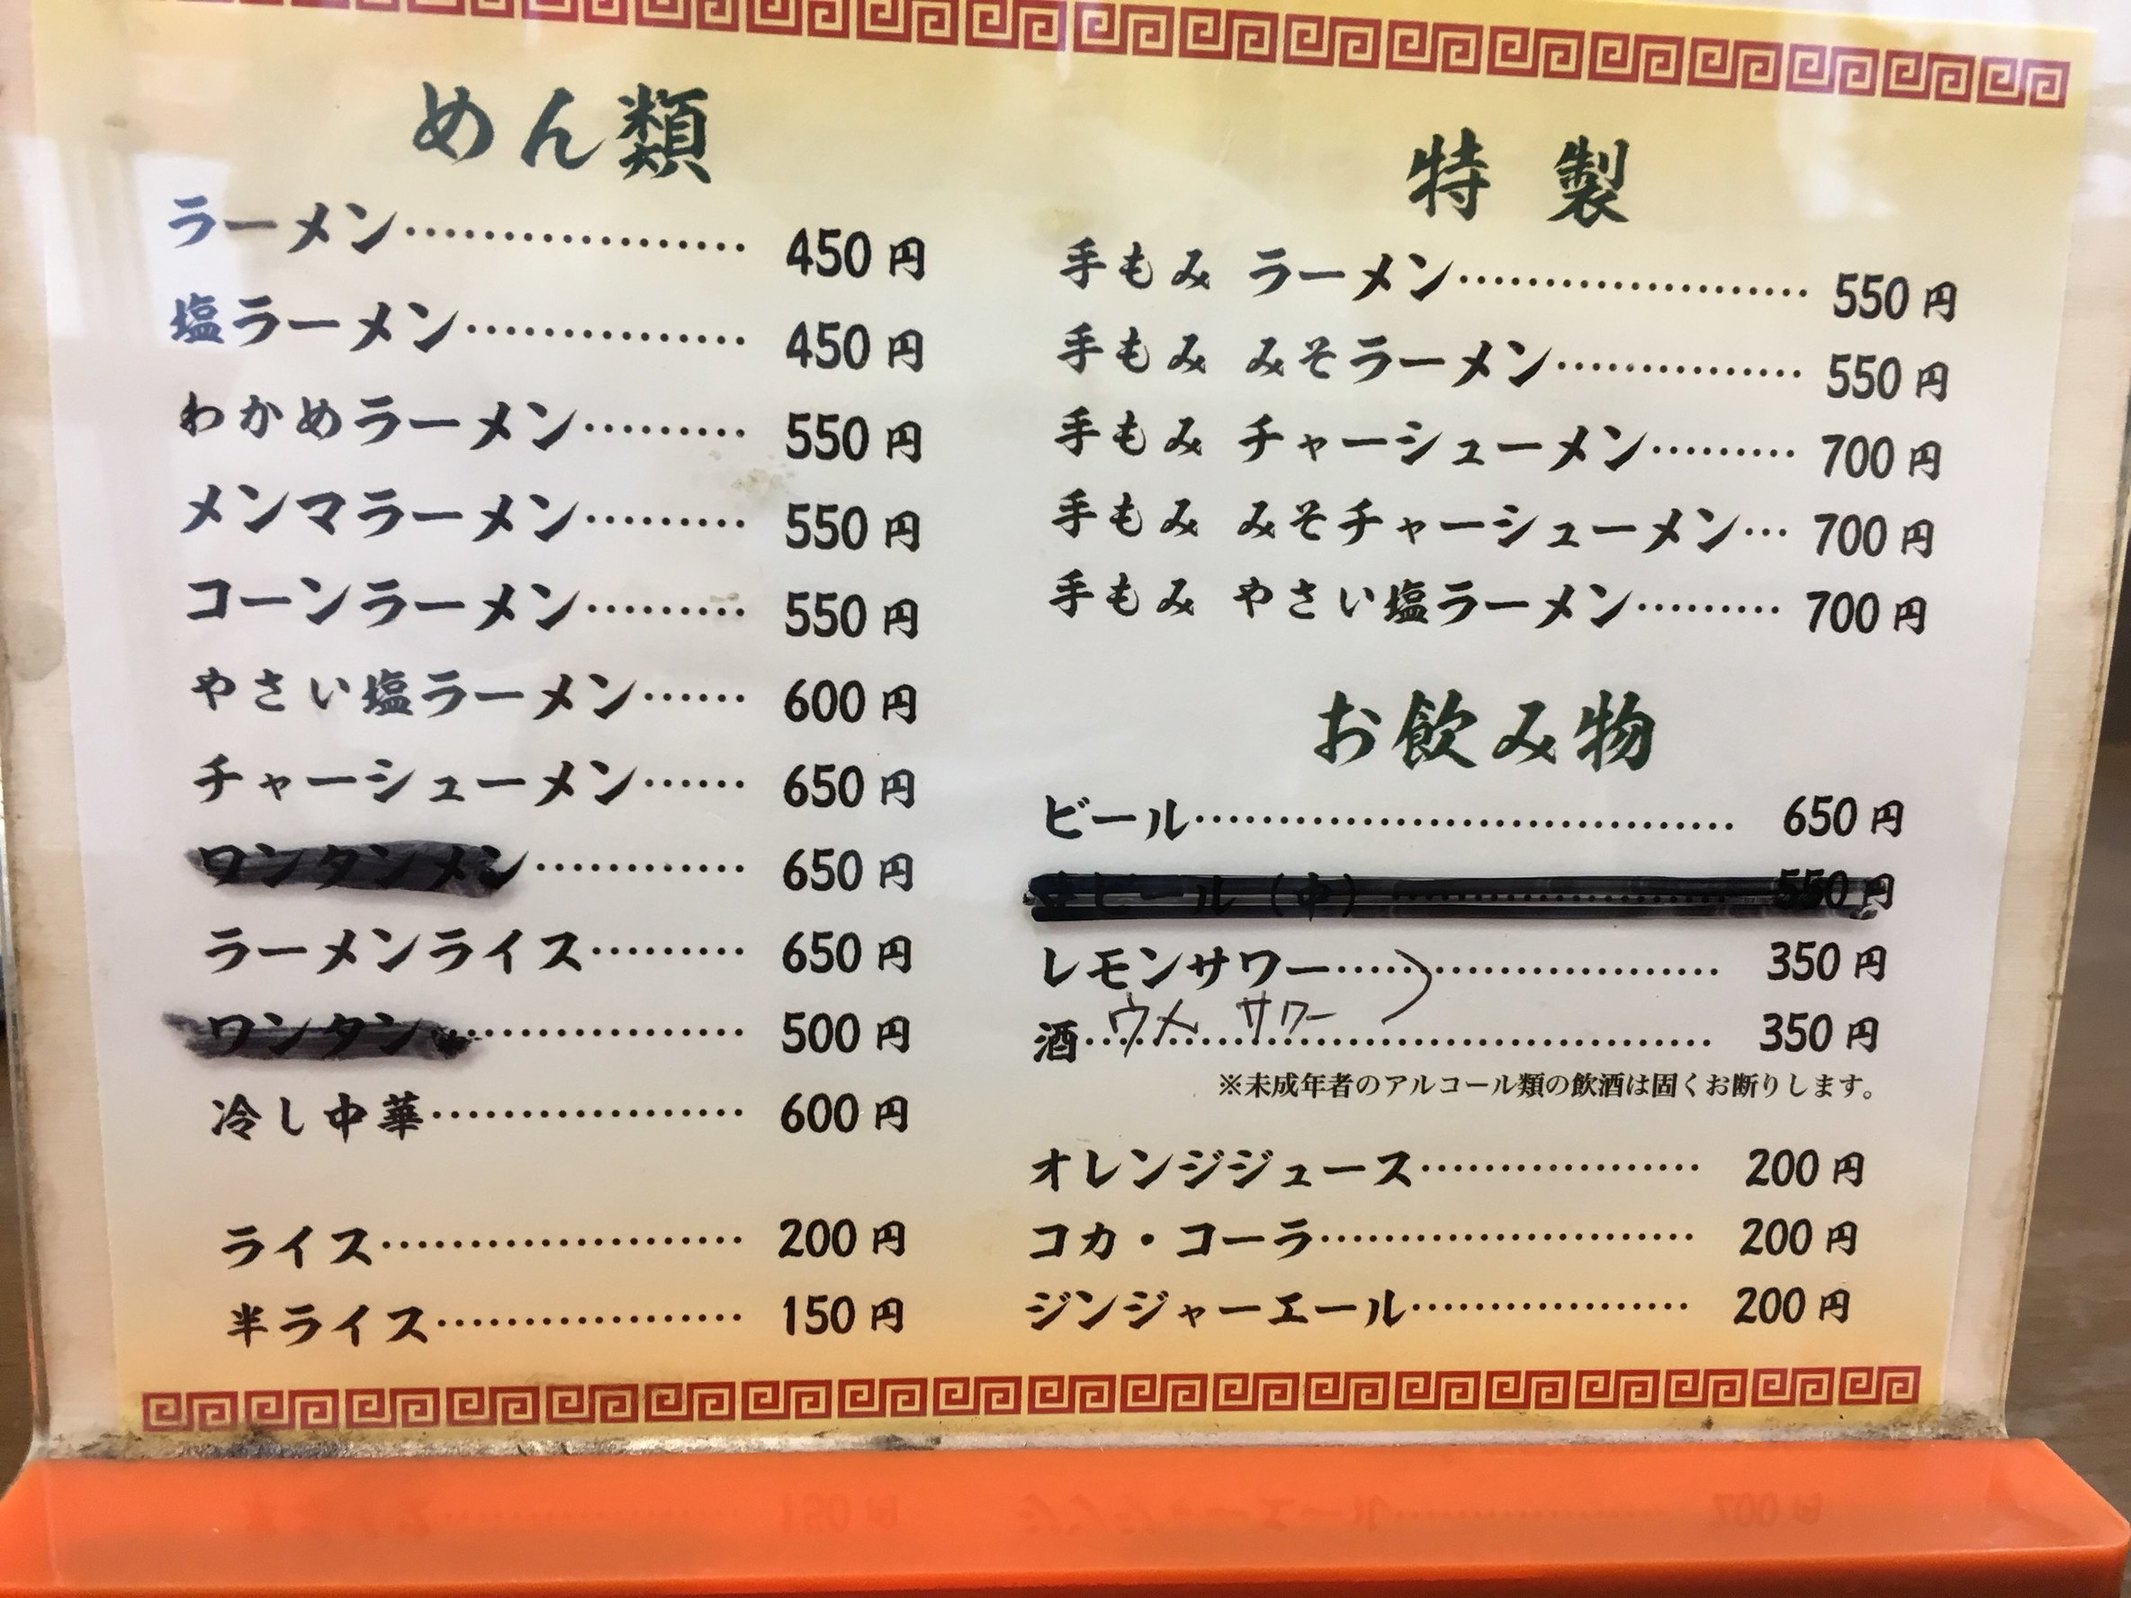 めん類
ラーメン………………450円
塩ラーメン……………450円
わかめラーメン………550円
メンマラーメン………550円
コーンラーメン………550円
やさい塩ラーメン……600円
チャーシューメン……650円
ワンタンメン…………650円
ラーメンライス………650円
ワンタン………………500円
冷し中華………………600円
ライス…………………200円
半ライス………………150円
特製
手もみ ラーメン…………………550円
手もみ みそラーメン……………550円
手もみ チャーシューメン………700円
手もみ みそチャーシューメン…700円
手もみ やさい塩ラーメン………700円
お飲み物
ビール…………………………650円
ビール(中)…………………550円
レモンサワー…………………350円
ウメ サワー
酒………………………………350円
※未成年者のアルコール類の飲酒は固くお断りします。
オレンジジュース……………200円
コカ・コーラ…………………200円
ジンジャーエール……………200円